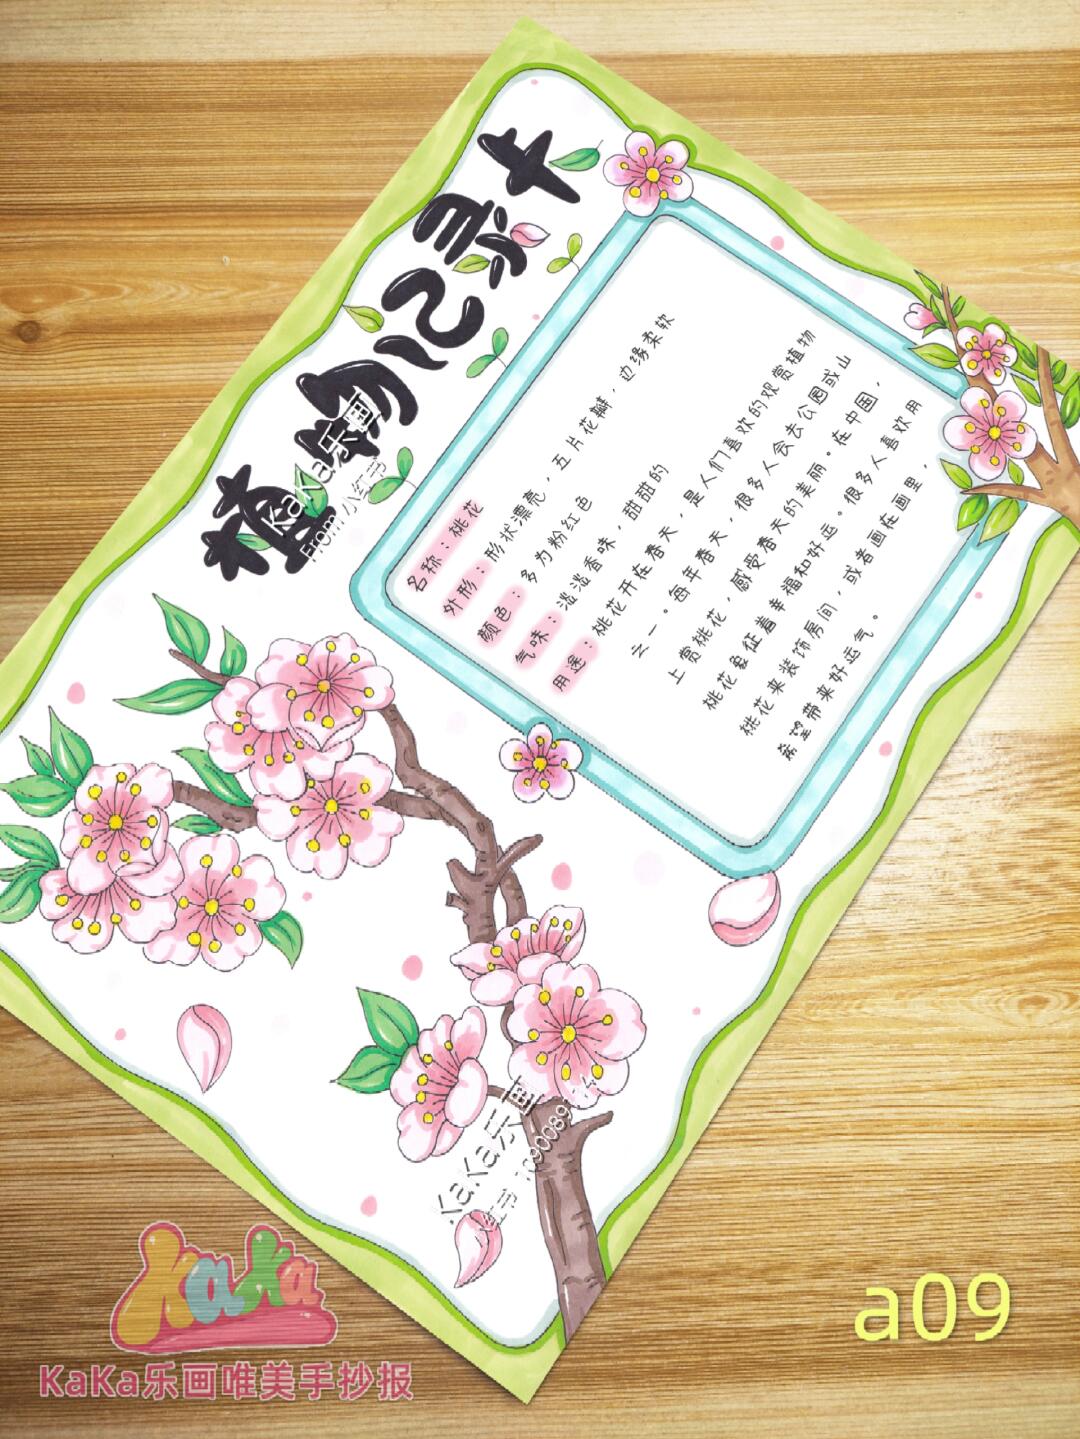 植物记录卡
名称：桃花
外形：形状漂亮，五片花瓣，边缘柔软
颜色：多为粉红色
气味：淡淡香味，甜甜的
用途：桃花开在春天，是人们喜欢的观赏植物
之一。每年春天，很多人会去公园或山
上赏桃花，感受春天的美丽。在中国，
桃花象征着幸福和好运。很多人喜欢用
桃花来装饰房间，或者画在画里，
希望带来好运气。
KaKa乐画
From 小红书
KaKa乐画
KaKa
KaKa乐画唯美手抄报
a09